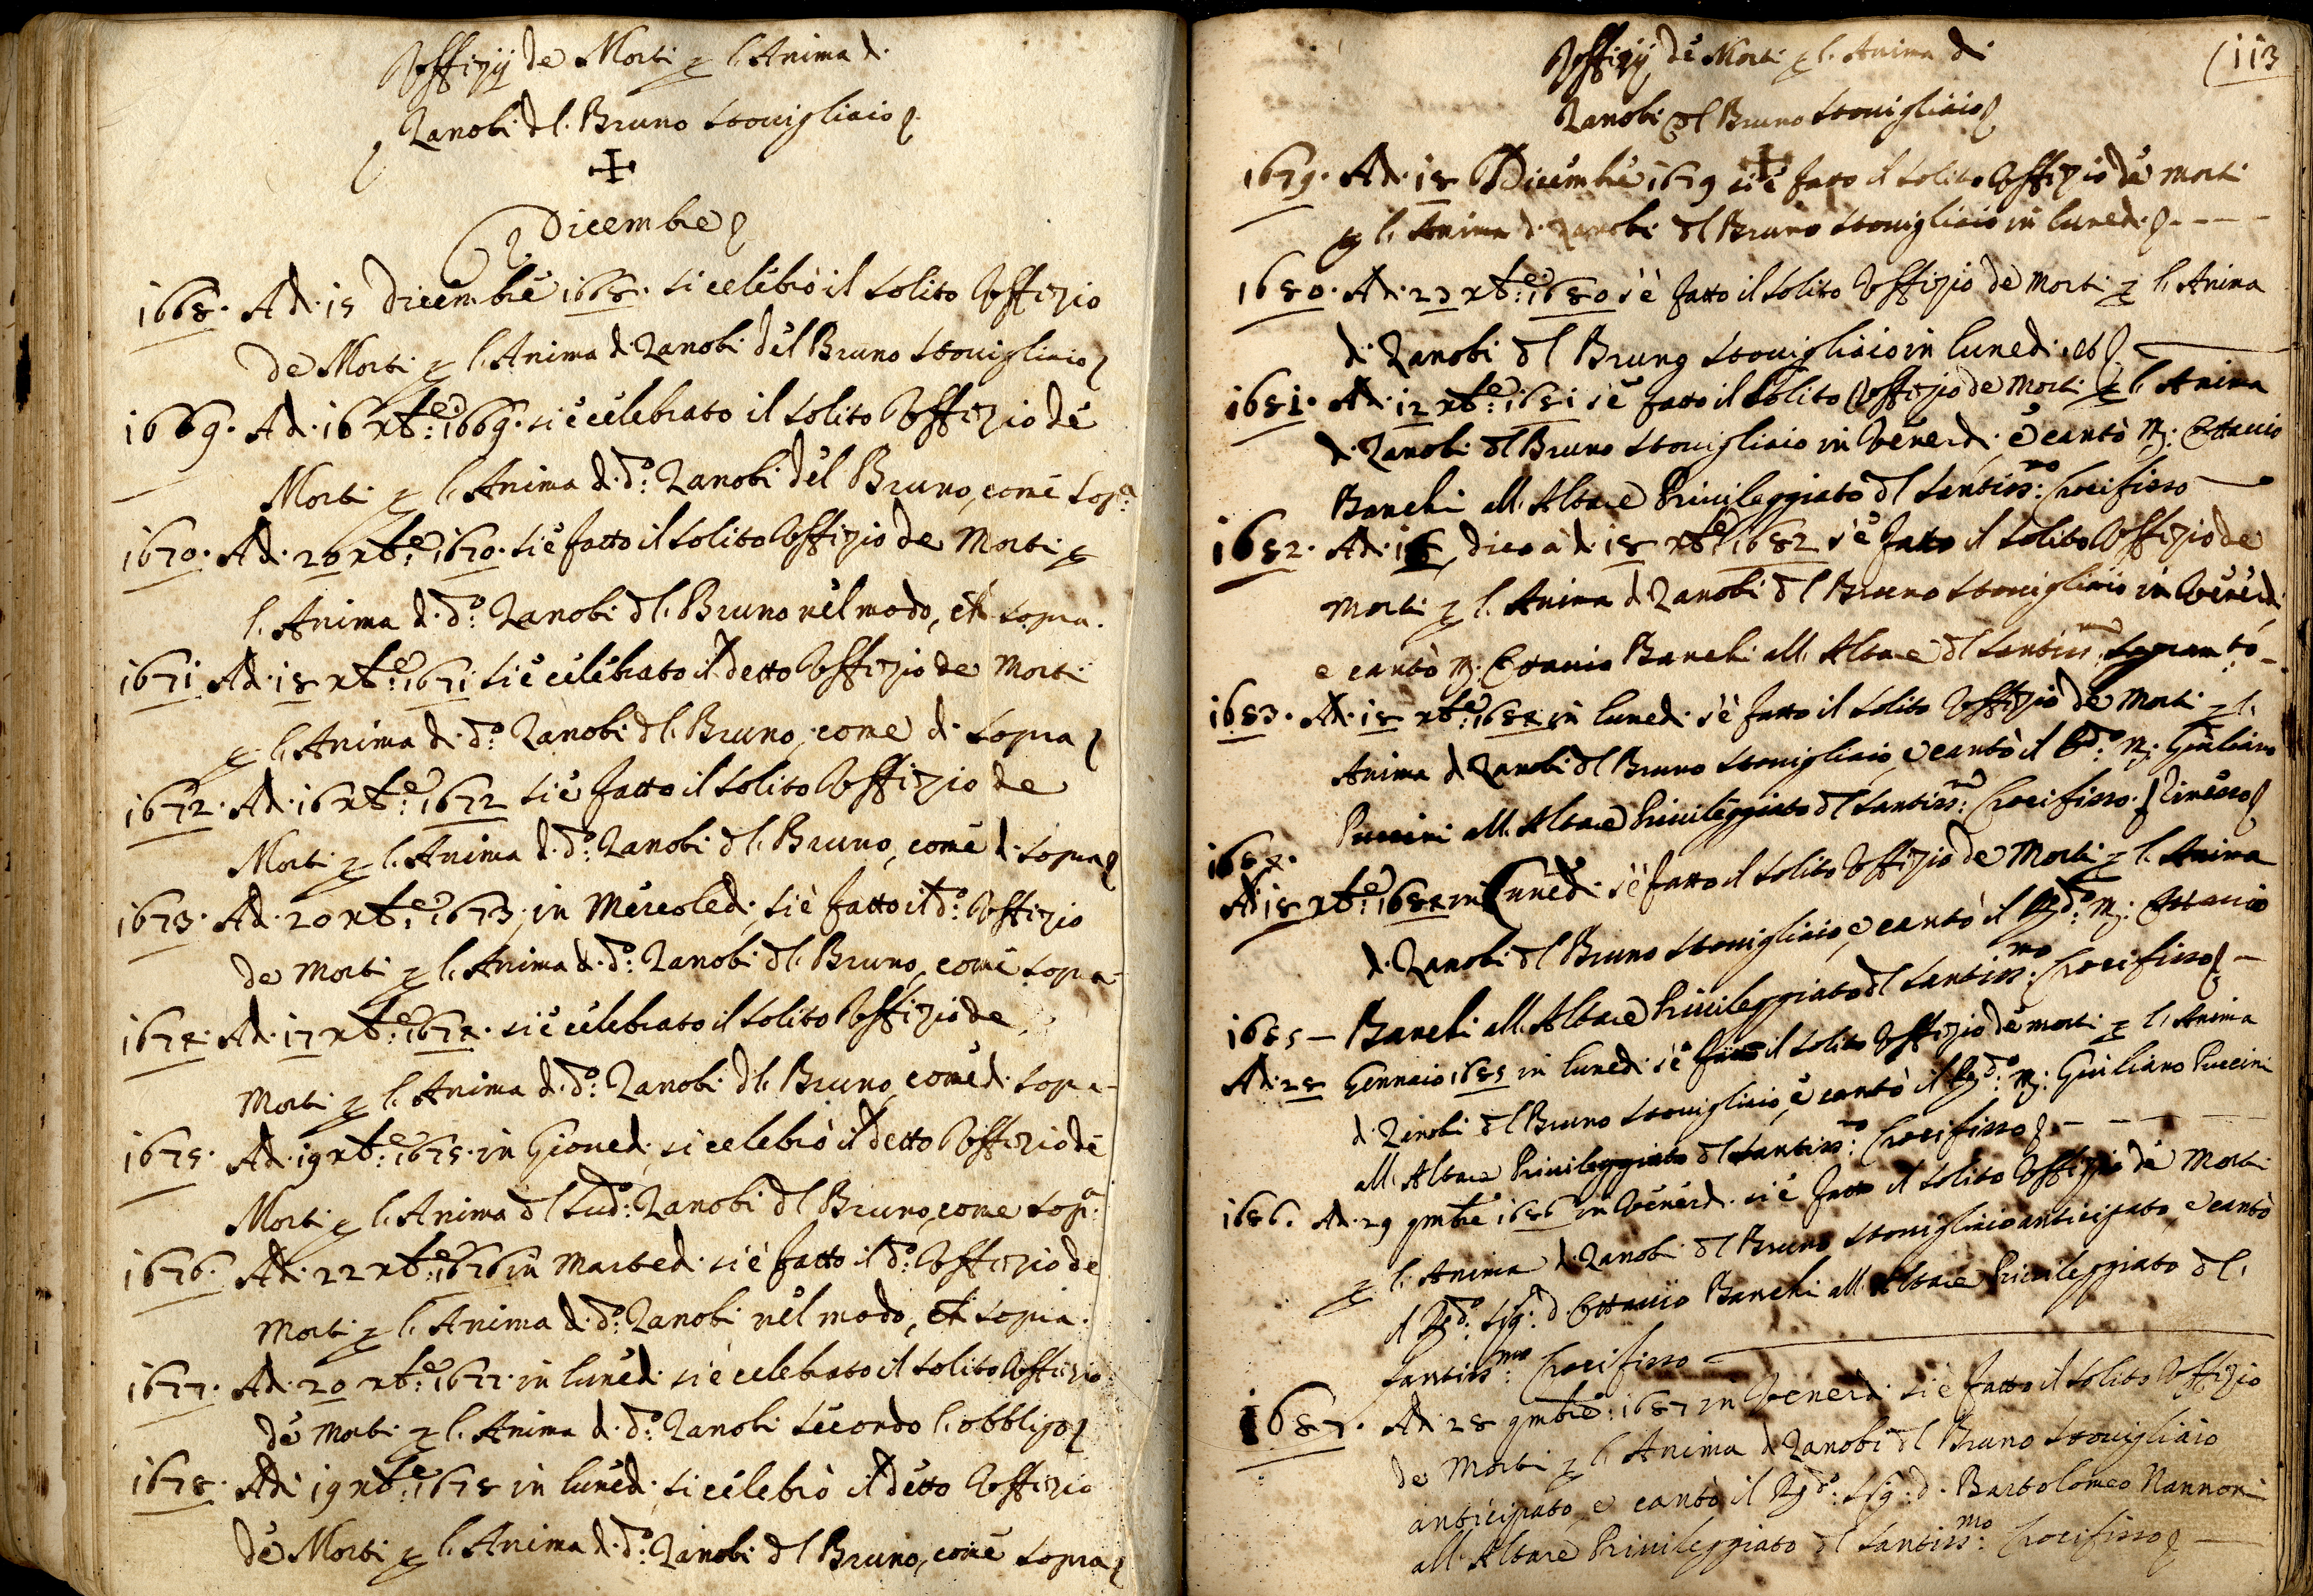 Offizij de Morti p l'Anima di
Zanobi del Bruno stovigliaio
Dicembre
1668. Adi 15 Dicembre 1668. si celebrò il solito Offizio
de Morti p l'Anima di Zanobi del Bruno Stovigliaio
1669. Adi 16 Xbre: 1669. si è celebrato il solito Offizio de
Morti p l'Anima di do: Zanobi del Bruno, come sopa
1670. Adi 20 Xbre: 1670. si è fatto il solito Offizio de Morti p
l'Anima di do: Zanobi del Bruno nel modo, che sopra.
1671 Adi 18 Xbre: 1671 si è celebrato il detto Offizio de Morti
p l'Anima di do: Zanobi del Bruno, come di sopra
1672. Adi 16 Xbre: 1672 si è fatto il solito Offizio de
Morti p l'Anima di do: Zanobi del Bruno, come di sopra
1673. Adi 20 Xbre: 1673, in Mercoledi si è fatto il do: Offizio
de Morti p l'Anima di do: Zanobi del Bruno, come sopra
1674. Adi 17 Xbre: 1674. si è celebrato il solito Offizio de
Morti p l'Anima di do: Zanobi del Bruno, come di sopra
1675. Adi 19 Xbre: 1675. in Giovedi si celebrò il detto Offizio de
Morti p l'Anima del sudo: Zanobi del Bruno, come sopa:
1676. Adi 22 Xbre: 1676 in Martedi si è fatto il do: Offizio de
Morti p l'Anima di do: Zanobi nel modo, che sopra.
1677. Adi 20 Xbre: 1677. in lunedi si è celebrato il solito Offizio
de Morti p l'Anima di do: Zanobi secondo l'obbligo
1678. Adi 19 Xbre: 1678 in lunedi si celebrò il detto Offizio
de Morti p l'Anima di do: Zanobi del Bruno, come sopra
113
Offizij de Morti p l'Anima di
Zanobi del Bruno stovigliaio
1679. Adi 18 Dicembre 1679 si è fatto il solito Offizio de Morti
p l'Anima di Zanobi del Bruno stovigliaio in lunedi
1680. Adi 23 Xbre: 1680 s'è fatto il solito Offizio de Morti p l'Anima
di Zanobi del Bruno stovigliaio in lunedi
1681. Adi 12 Xbre: 1681 s'è fatto il solito Offizio de Morti p l'Anima
di Zanobi del Bruno stovigliaio in Venerdi, e cantò M: Ottavio
Banchi all'Altare Privileggiato del Santissmo: Crocifisso
1682. Adi 16, dico adi 18 Xbre: 1682 s'è fatto il solito Offizio de
Morti p l'Anima di Zanobi del Bruno stovigliaio in Venerdi
e cantò M: Ottavio Banchi all'Altare del Santissmo Sagramto
1683. Adi 18 Xbre: 1684 in lunedi s'è fatto il solito Offizio de Morti p l'
Anima di Zanobi del Bruno stovigliaio, e cantò il Rdo: M: Giuliano
Puccini all'Altare Privileggiato del Santissmo: Crocifisso.
1684.
Adi 18 Xbre: 1684 in lunedi s'è fatto il solito Offizio de Morti p l'Anima
di Zanobi del Bruno stovigliaio, e cantò il Rdo: M: Ottavio
1685 – Banchi all'Altare Privileggiato del Santissmo: Crocifisso
Adi 28 Gennaio 1685 in lunedi s'è fatto il solito Offizio de morti p l'Anima
di Zanobi del Bruno stovigliaio, e cantò il Rdo: M: Giuliano Puccini
all'Altare Privileggiato del Santissmo: Crocifisso
1686. Adi 29 9mbre 1686 in Venerdi si è fatto il solito Offizio de Morti
p l'Anima di Zanobi del Bruno stovigliaio anticipato, e cantò
il Rdo: Sigr: D. Ottavio Banchi all'Altare Privileggiato del
Santissmo: Crocifisso
1687. Adi 28 9mbre: 1687 in Venerdi si è fatto il solito Offizio
de Morti p l'Anima di Zanobi del Bruno stovigliaio
anticipato, e cantò il Rdo: Sigr: D. Bartolomeo Nannoni
all'Altare Privileggiato del Santissmo: Crocifisso